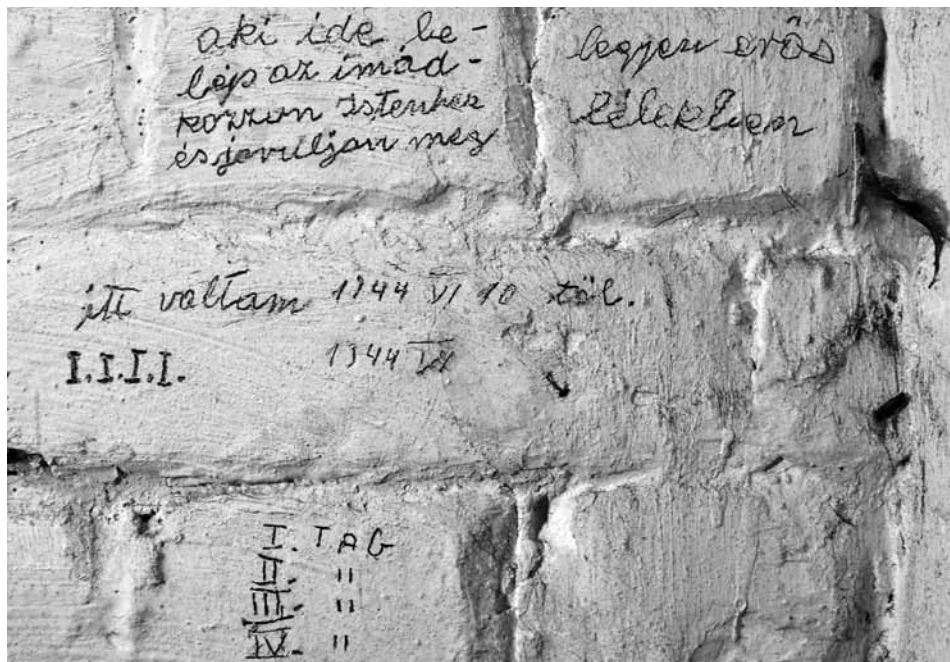 aki ide be-
lép az imád-
kozzon Istenhez
és javuljon meg
legyen erős
lélekben
itt voltam 1944 VI 10 től.
I.I.I.I. 1944 VI
I. TAG
II. "
III. "
IV. "